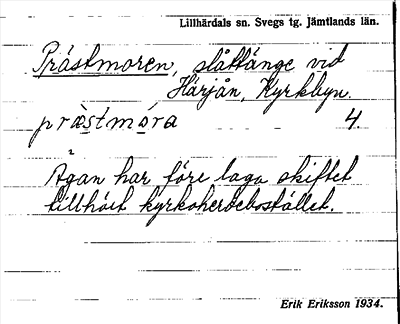 Lillhärdals sn. Svegs tg. Jämtlands län.
Prästmoren, slåttänge vid
Härjån, Kyrkbyn.
præstmóra 4.
Ägan har före laga skiftet
tillhört kyrkoherdebostället.
Erik Eriksson 1934.